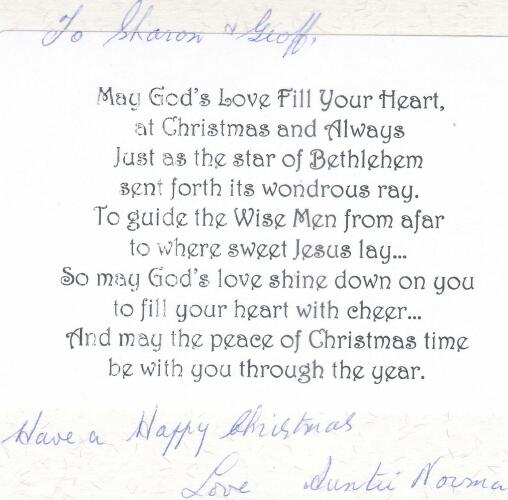 To Sharon & Geoff,
May God's Love Fill Your Heart,
at Christmas and Always
Just as the star of Bethlehem
sent forth its wondrous ray.
To guide the Wise Men from afar
to where sweet Jesus lay...
So may God's love shine down on you
to fill your heart with cheer...
And may the peace of Christmas time
be with you through the year.
Have a Happy Christmas
Love Auntie Norma